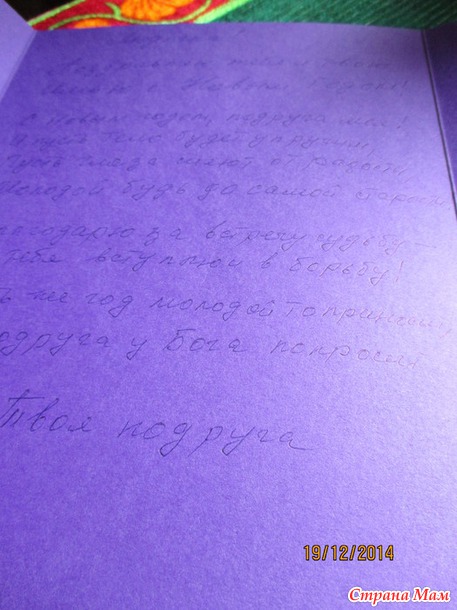 Поздравляю тебя и твою
с Новым Годом!
С Новым годом, подруга моя!
Пусть тело будет упругим,
Пусть глаза сияют от радости,
Молодой будь до самой старости
благодарю за встречу судьбу –
тебя вступлю в борьбу!
ть же год молодой
одруга у Бога попросит
Твоя подруга
19/12/2014
Страна Мам